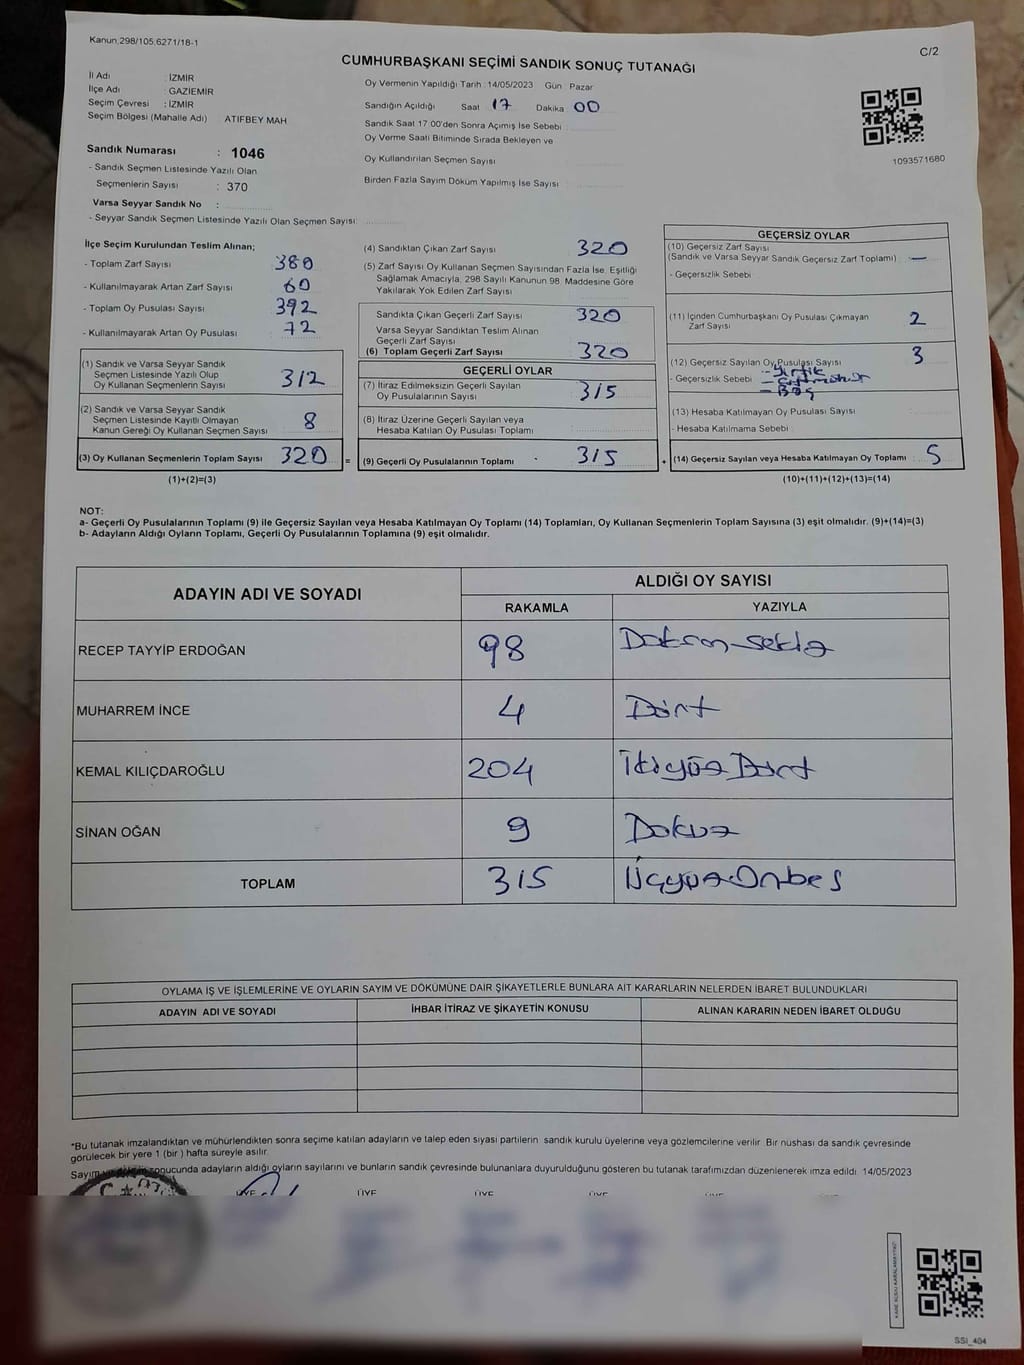 Kanun;298/105,6271/18-1
C/2
CUMHURBAŞKANI SEÇİMİ SANDIK SONUÇ TUTANAĞI
İl Adı : İZMİR
İlçe Adı : GAZİEMİR
Seçim Çevresi : İZMİR
Seçim Bölgesi (Mahalle Adı) : ATIFBEY MAH
Sandık Numarası : 1046
- Sandık Seçmen Listesinde Yazılı Olan
Seçmenlerin Sayısı : 370
Varsa Seyyar Sandık No :
- Seyyar Sandık Seçmen Listesinde Yazılı Olan Seçmen Sayısı:
Oy Vermenin Yapıldığı Tarih :14/05/2023 Gün Pazar
Sandığın Açıldığı Saat 17 Dakika 00
Sandık Saat 17:00'den Sonra Açımış İse Sebebi
Oy Verme Saati Bitiminde Sırada Bekleyen ve
Oy Kullandırılan Seçmen Sayısı
Birden Fazla Sayım Döküm Yapılmış İse Sayısı
1093571680
İlçe Seçim Kurulundan Teslim Alınan;
- Toplam Zarf Sayısı 380
- Kullanılmayarak Artan Zarf Sayısı 60
- Toplam Oy Pusulası Sayısı 392
- Kullanılmayarak Artan Oy Pusulası 72
(1) Sandık ve Varsa Seyyar Sandık
Seçmen Listesinde Yazılı Olup
Oy Kullanan Seçmenlerin Sayısı 312
(2) Sandık ve Varsa Seyyar Sandık
Seçmen Listesinde Kayıtlı Olmayan
Kanun Gereği Oy Kullanan Seçmen Sayısı 8
(3) Oy Kullanan Seçmenlerin Toplam Sayısı 320 =
(1)+(2)=(3)
(4) Sandıktan Çıkan Zarf Sayısı 320
(5) Zarf Sayısı Oy Kullanan Seçmen Sayısından Fazla İse, Eşitliği
Sağlamak Amacıyla, 298 Sayılı Kanunun 98. Maddesine Göre
Yakılarak Yok Edilen Zarf Sayısı
Sandıkta Çıkan Geçerli Zarf Sayısı 320
Varsa Seyyar Sandıktan Teslim Alınan
Geçerli Zarf Sayısı
(6) Toplam Geçerli Zarf Sayısı 320
GEÇERLİ OYLAR
(7) İtiraz Edilmeksizin Geçerli Sayılan
Oy Pusulalarının Sayısı 315
(8) İtiraz Üzerine Geçerli Sayılan veya
Hesaba Katılan Oy Pusulası Toplamı
(9) Geçerli Oy Pusulalarının Toplamı 315 +
GEÇERSİZ OYLAR
(10) Geçersiz Zarf Sayısı
(Sandık ve Varsa Seyyar Sandık Geçersiz Zarf Toplamı) —
- Geçersizlik Sebebi
(11) İçinden Cumhurbaşkanı Oy Pusulası Çıkmayan
Zarf Sayısı 2
(12) Geçersiz Sayılan Oy Pusulası Sayısı 3
- Geçersizlik Sebebi - Yırtık
- Boş
(13) Hesaba Katılmayan Oy Pusulası Sayısı
- Hesaba Katılmama Sebebi
(14) Geçersiz Sayılan veya Hesaba Katılmayan Oy Toplamı 5
(10)+(11)+(12)+(13)=(14)
NOT:
a- Geçerli Oy Pusulalarının Toplamı (9) ile Geçersiz Sayılan veya Hesaba Katılmayan Oy Toplamı (14) Toplamları, Oy Kullanan Seçmenlerin Toplam Sayısına (3) eşit olmalıdır. (9)+(14)=(3)
b- Adayların Aldığı Oyların Toplamı, Geçerli Oy Pusulalarının Toplamına (9) eşit olmalıdır.
ADAYIN ADI VE SOYADI
ALDIĞI OY SAYISI
RAKAMLA YAZIYLA
RECEP TAYYİP ERDOĞAN 98 Doksan sekiz
MUHARREM İNCE 4 Dört
KEMAL KILIÇDAROĞLU 204 İkiyüz Dört
SİNAN OĞAN 9 Dokuz
TOPLAM 315 Üçyüz Onbeş
OYLAMA İŞ VE İŞLEMLERİNE VE OYLARIN SAYIM VE DÖKÜMÜNE DAİR ŞİKAYETLERLE BUNLARA AİT KARARLARIN NELERDEN İBARET BULUNDUKLARI
ADAYIN ADI VE SOYADI İHBAR İTİRAZ VE ŞİKAYETİN KONUSU ALINAN KARARIN NEDEN İBARET OLDUĞU
*Bu tutanak imzalandıktan ve mühürlendikten sonra seçime katılan adayların ve talep eden siyasi partilerin sandık kurulu üyelerine veya gözlemcilerine verilir. Bir nüshası da sandık çevresinde
görülecek bir yere 1 (bir ) hafta süreyle asılır.
Sayım sonucunda adayların aldığı oyların sayılarını ve bunların sandık çevresinde bulunanlara duyurulduğunu gösteren bu tutanak tarafımızdan düzenlenerek imza edildi. 14/05/2023
ÜYE ÜYE ÜYE ÜYE ÜYE
SSİ_404